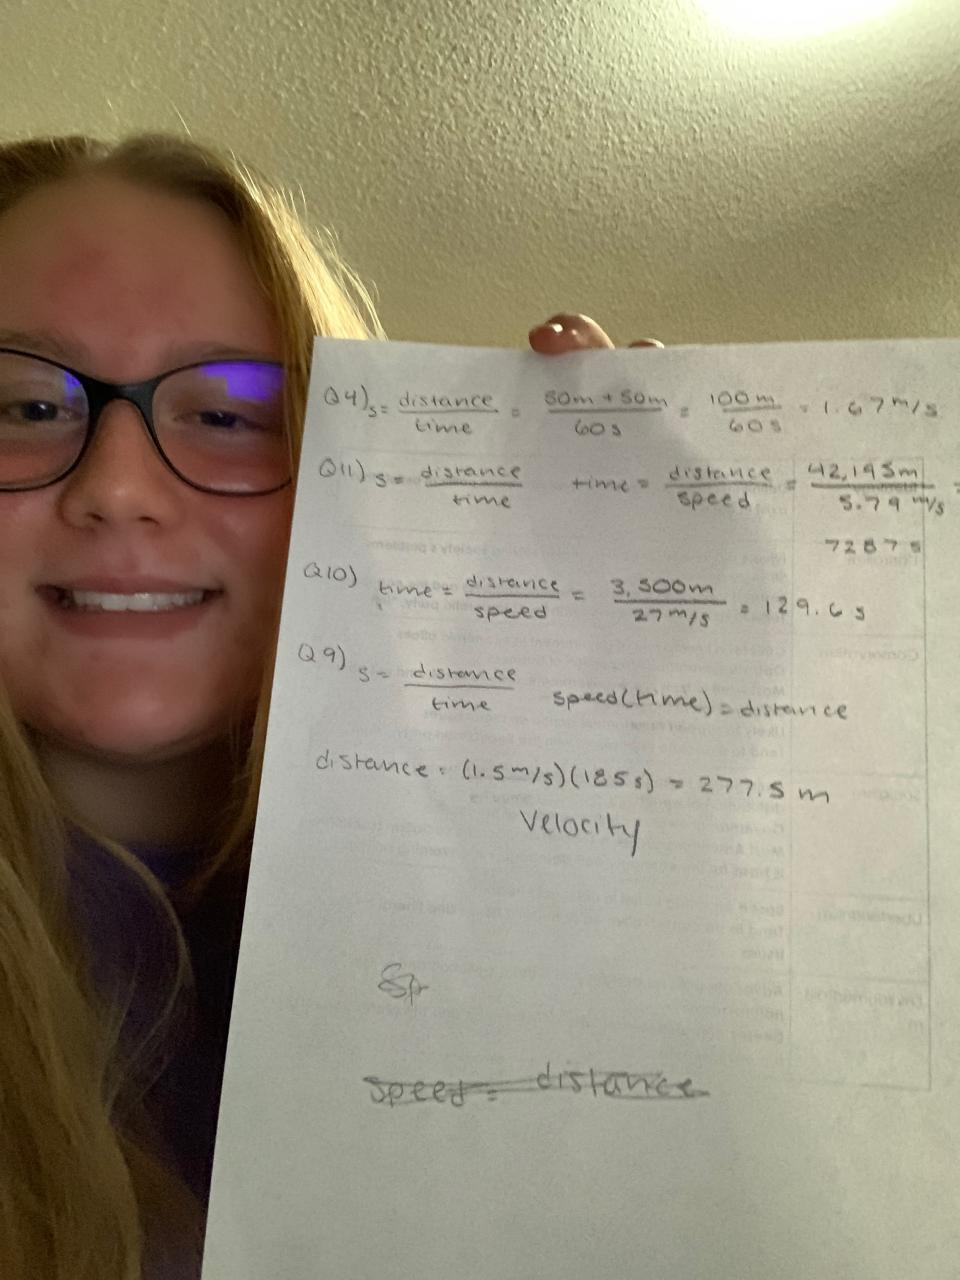 Q4) s = distance/time = 50m + 50m/60s = 100m/60s = 1.67 m/s
Q11) s = distance/time time = distance/speed = 42,195m/5.79 m/s =
7287s
Q10) time = distance/speed = 3,500m/27 m/s = 129.6 s
Q9) s = distance/time speed(time) = distance
distance = (1.5 m/s)(185 s) = 277.5 m
Velocity
Sp
speed = distance